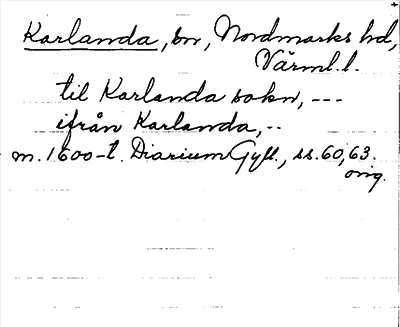 Karlanda, sn, Nordmarks hd,
Värml. l.
til Karlanda sokn, ---
ifrån Karlanda, --
m. 1600-t. Diarium Gyll., ss. 60, 63.
orig.